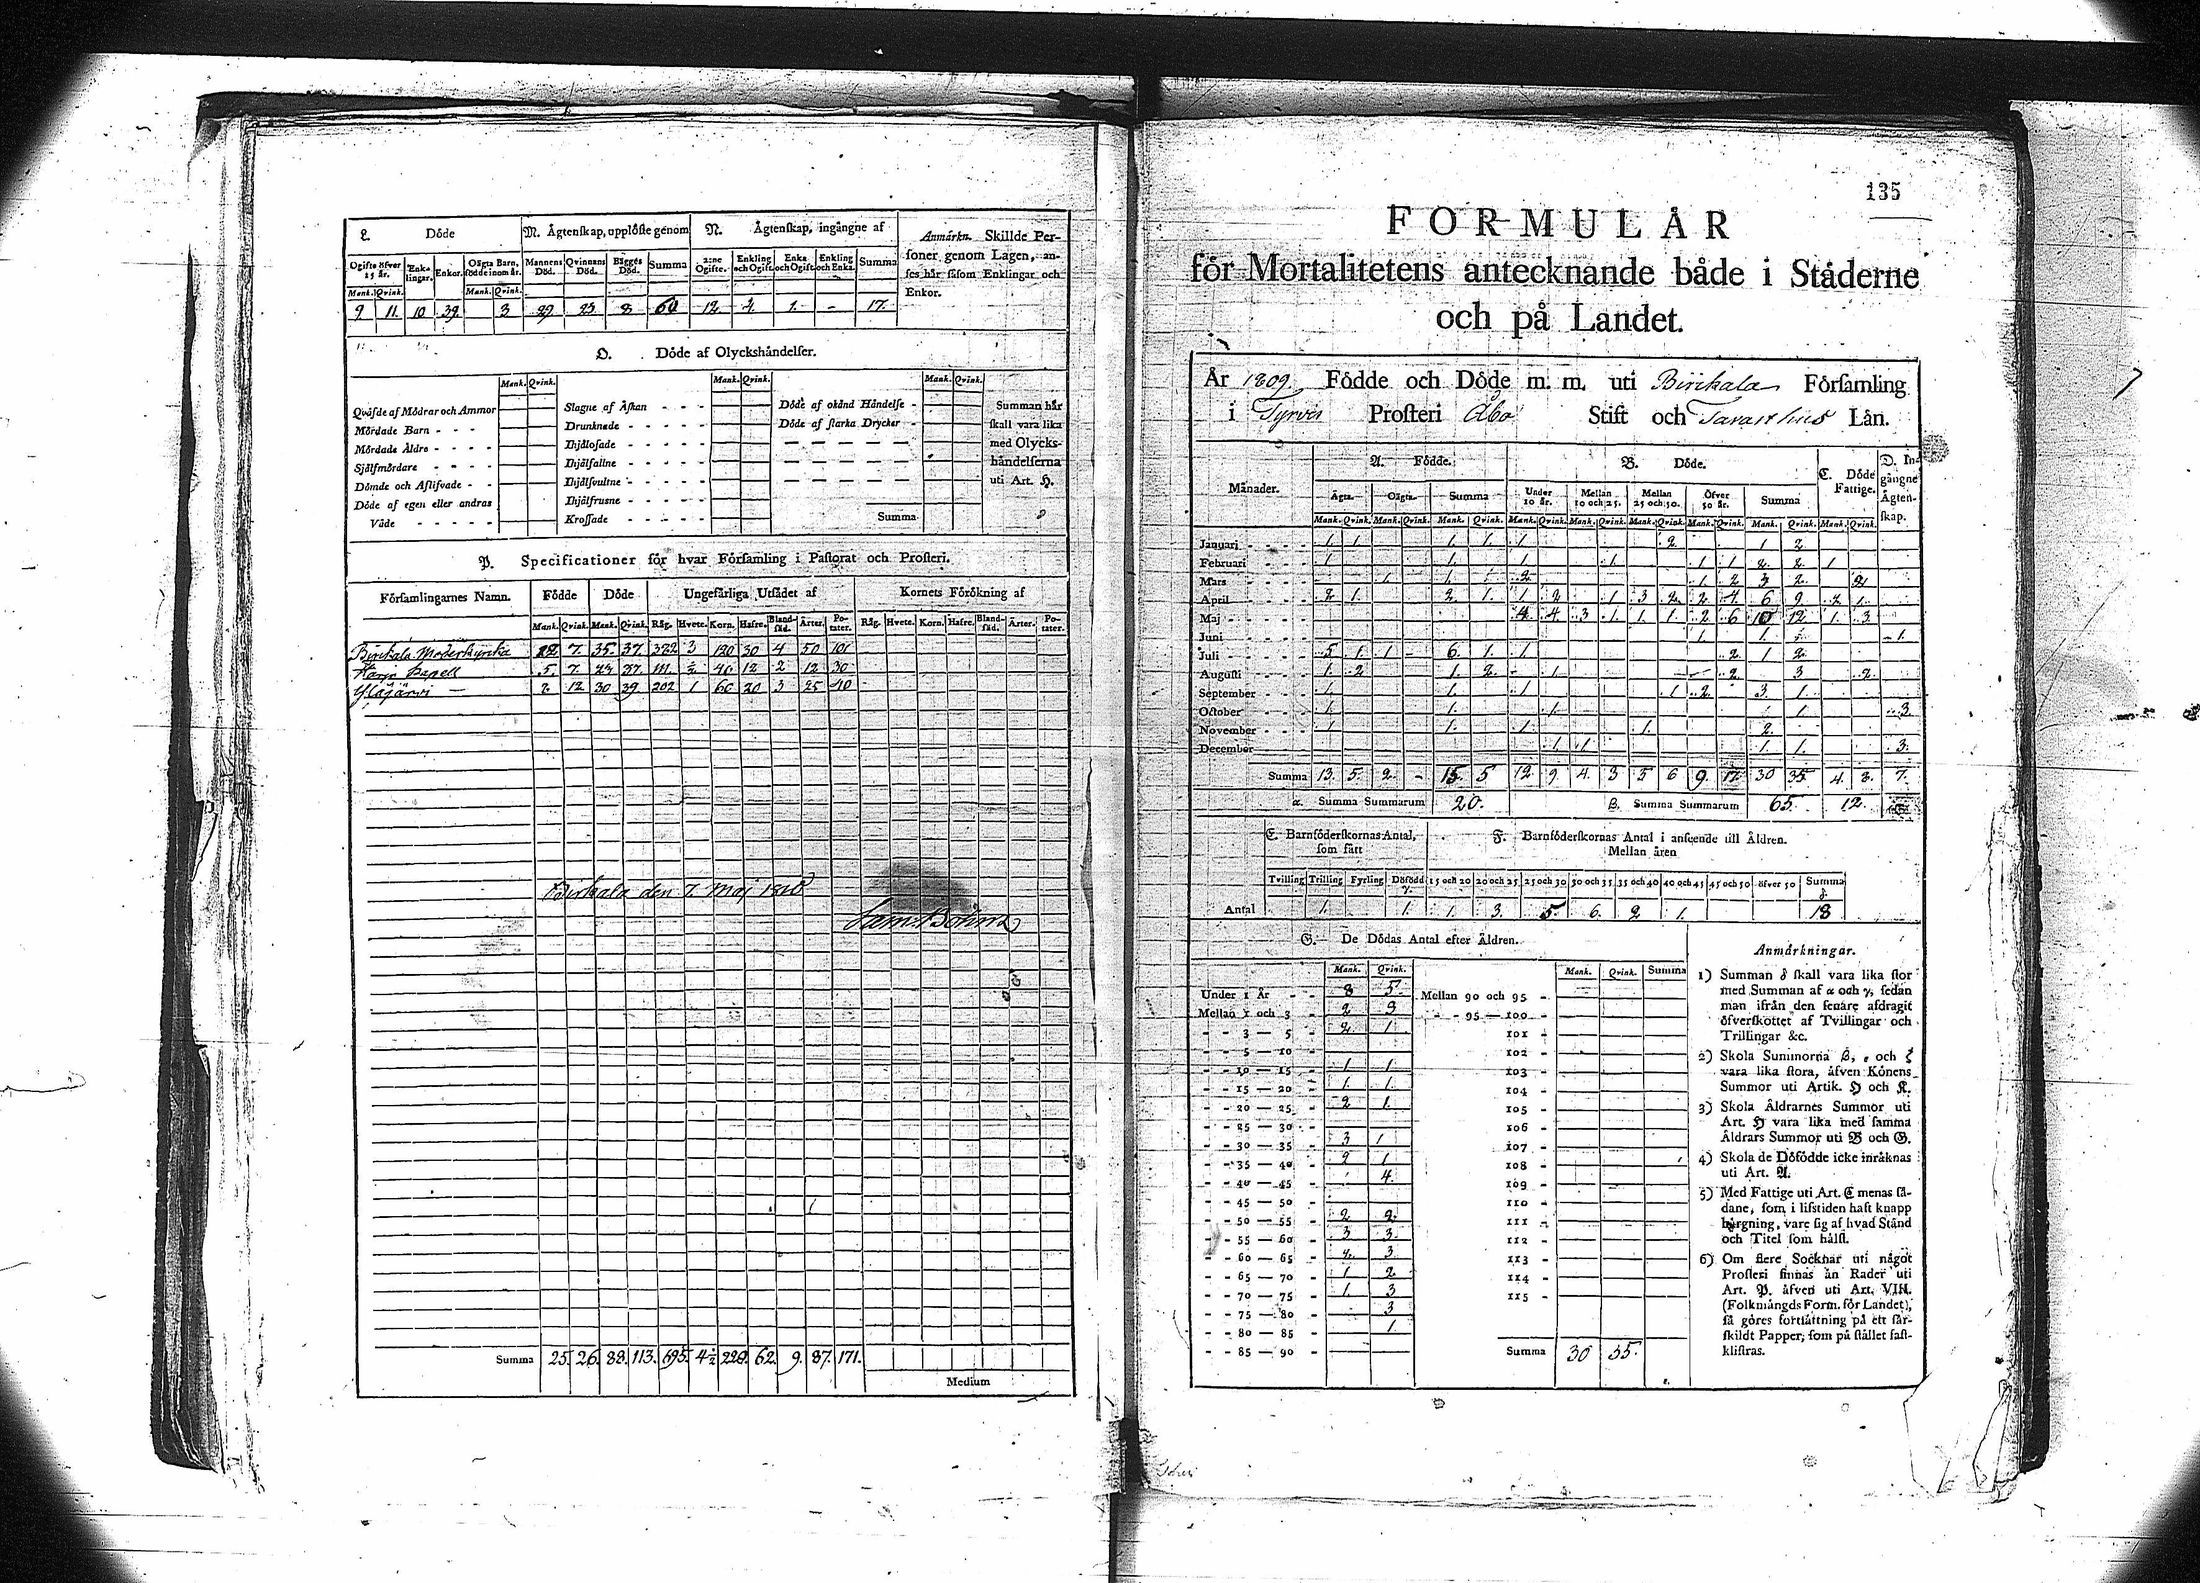 L. Döde
M. Ägtenskap, upplöste genom
N. Ägtenskap, ingångne af
Anmärkn. Skillde Per-
soner genom Lagen, an-
ses här såsom Enklingar och
Enkor.
Ogifte öfver 15 år. Enklingar. Enkor. Oägta Barn, födde inom år. Mannens Död. Qvinnans Död. Bägges Död. Summa 2:ne Ogifte. Enkling och Ogift. Enka och Ogift. Enkling och Enka. Summa
Mank. Qvink. Mank. Qvink.
9 11. 10 39. 3 29 23 8 60 12 4. 1. - 17.
O. Döde af Olyckshändelser.
Mank. Qvink. Mank. Qvink. Mank. Qvink.
Qväfde af Mödrar och Ammor
Mördade Barn - - -
Mördade Äldre - - - -
Sjelfmördare - - - -
Dömde och Aflifvade - -
Döde af egen eller andras
Våde - - - - -
Slagne af Åskan - - - -
Drunknade - - - - -
Ihjälosade - - - - -
Ihjälfallne - - - - -
Ihjälsvultne - - - - -
Ihjälfrusne - - - - -
Krossade - - - - -
Döde af okänd Händelse -
Döde af starka Drycker -
Summa
Summan här
skall vara lika
med Olycks-
händelserna
uti Art. H.
P. Specificationer för hvar Församling i Pastorat och Prosteri.
Församlingarnes Namn. Födde Döde Ungefärliga Utsädet af Kornets Förökning af
Mank. Qvink. Mank. Qvink. Råg. Hvete. Korn. Hafre. Bland-säd. Ärter. Potater. Råg. Hvete. Korn. Hafre. Bland-säd. Ärter. Potater.
Birikala Moderkyrka 7. 35. 37. 382 3 120 30 4 50 101
Harju Capell 5. 7. 23 37. 111. ½ 40 12 2 12 30
Ylöjärvi - 12. 30 39 202 1 60 20 3 25 40
Birkala den 7. Maj 1810
Sam: Böhm
Summa 25. 26. 88. 113. 695. 4½ 220. 62. 9. 87. 171.
Medium
135
FORMULÄR
för Mortalitetens antecknande både i Städerne
och på Landet.
År 1809 Födde och Döde m. m. uti Birikala Församling
i Tyrvis Prosteri Åbo Stift och Tavasthus Län.
Månader. A. Födde. B. Döde. C. Döde Fattige. D. Ingångne Ägtenskap.
Ägta. Oägta. Summa Under 10 år. Mellan 10 och 25. Mellan 25 och 50. Öfver 50 år. Summa
Mank. Qvink. Mank. Qvink. Mank. Qvink. Mank. Qvink. Mank. Qvink. Mank. Qvink. Mank. Qvink. Mank. Qvink. Mank. Qvink.
Januari - - - - 1. 1. 1. 1. 1. 2. 1 2
Februari - - - 1. 1. 1. 1. 1 1 2. 2. 1
Mars - - - - 1 1. 1 2 1 2 3 2. 2
April - - - - 2 1. 2. 1. 1 2 1 3 2 2 4. 6 9. 2 1.
Maj - - - - 4 4. 3 1. 1. 1. 2 6 10 12 1. 3.
Juni - - - - 1. 1. 1.
Juli - - - - 5 1 1 - 6. 1. 1. 2. 1 2
Augusti - - - 1. 2 1. 2. 1. 2. 3 2.
September - - - 1. 1. 1. 1 2. 3 1.
October - - - 1. 1. 1. 1. 3.
November - - - 1 1. 1. 1. 2.
December 1. 1. 1. 1. 3.
Summa 13. 5. 2. - 15. 5 12 9. 4. 3 5 6 9. 17 30 35 4. 8. 7.
α. Summa Summarum 20. β. Summa Summarum 65. 12.
E. Barnföderskornas Antal, som fått
F. Barnföderskornas Antal i anseende till Åldren.
Mellan åren
Tvilling Trilling Fyrling Dödfödd γ. 15 och 20 20 och 25 25 och 30 30 och 35 35 och 40 40 och 45 45 och 50 öfver 50 Summa δ
Antal 1. 1. 1. 3. 5. 6. 2 1. 18
G. De Dödas Antal efter Åldren.
Mank. Qvink. Mank. Qvink. Summa
Under 1 År - - 8 5. Mellan 90 och 95 -
Mellan 1 och 3 - 2 3 - - 95 — 100 -
- - 3 — 5 - 2 1 101 -
- - 5 — 10 - 102 -
- - 10 — 15 - 1 1 103 -
- - 15 — 20 - 1. 1. 104 -
- - 20 — 25 - 2 1. 105 -
- - 25 — 30 - 106 -
- - 30 — 35 - 3 1 107 -
- - 35 — 40 - 2 1 108 -
- - 40 — 45 - 4. 109 -
- - 45 — 50 - 110 -
- - 50 — 55 - 2 2. 111 -
- - 55 — 60 - 3 3. 112 -
- - 60 — 65 - 2. 3 113 -
- - 65 — 70 - 1 2 114 -
- - 70 — 75 - 1 3 115 -
- - 75 — 80 - 3
- - 80 — 85 - 1.
- - 85 — 90 - Summa 30 35.
Anmärkningar.
1) Summan δ skall vara lika stor
med Summan af α och γ, sedan
man ifrån den senare afdragit
öfverskottet af Tvillingar och
Trillingar &c.
2) Skola Summorna β, ε och ζ
vara lika stora, äfven Könens
Summor uti Artik. H och K.
3) Skola Åldrarnes Summor uti
Art. H vara lika med samma
Åldrars Summor uti B och G.
4) Skola de Dödfödde icke inräknas
uti Art. A.
5) Med Fattige uti Art. C menas så-
dane, som i lifstiden haft knapp
bärgning, vare sig af hvad Stånd
och Titel som hälst.
6) Om flere Socknar uti något
Prosteri finnas än Rader uti
Art. P. äfven uti Art. VIII.
(Folkmängds Form. för Landet),
så göres fortsättning på ett sär-
skildt Papper, som på stället fast-
klistras.